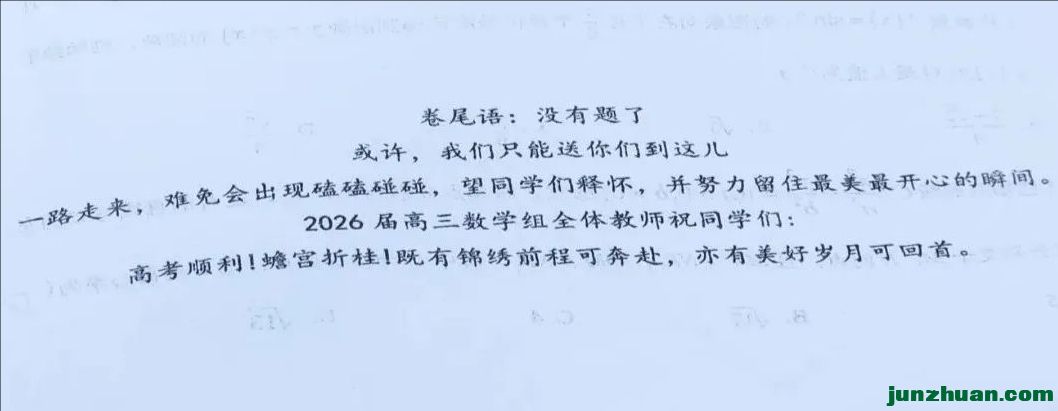 卷尾语：没有题了
或许，我们只能送你们到这儿
一路走来，难免会出现磕磕碰碰，望同学们释怀，并努力留住最美最开心的瞬间。
2026 届高三数学组全体教师祝同学们：
高考顺利！蟾宫折桂！既有锦绣前程可奔赴，亦有美好岁月可回首。
junzhuan.com